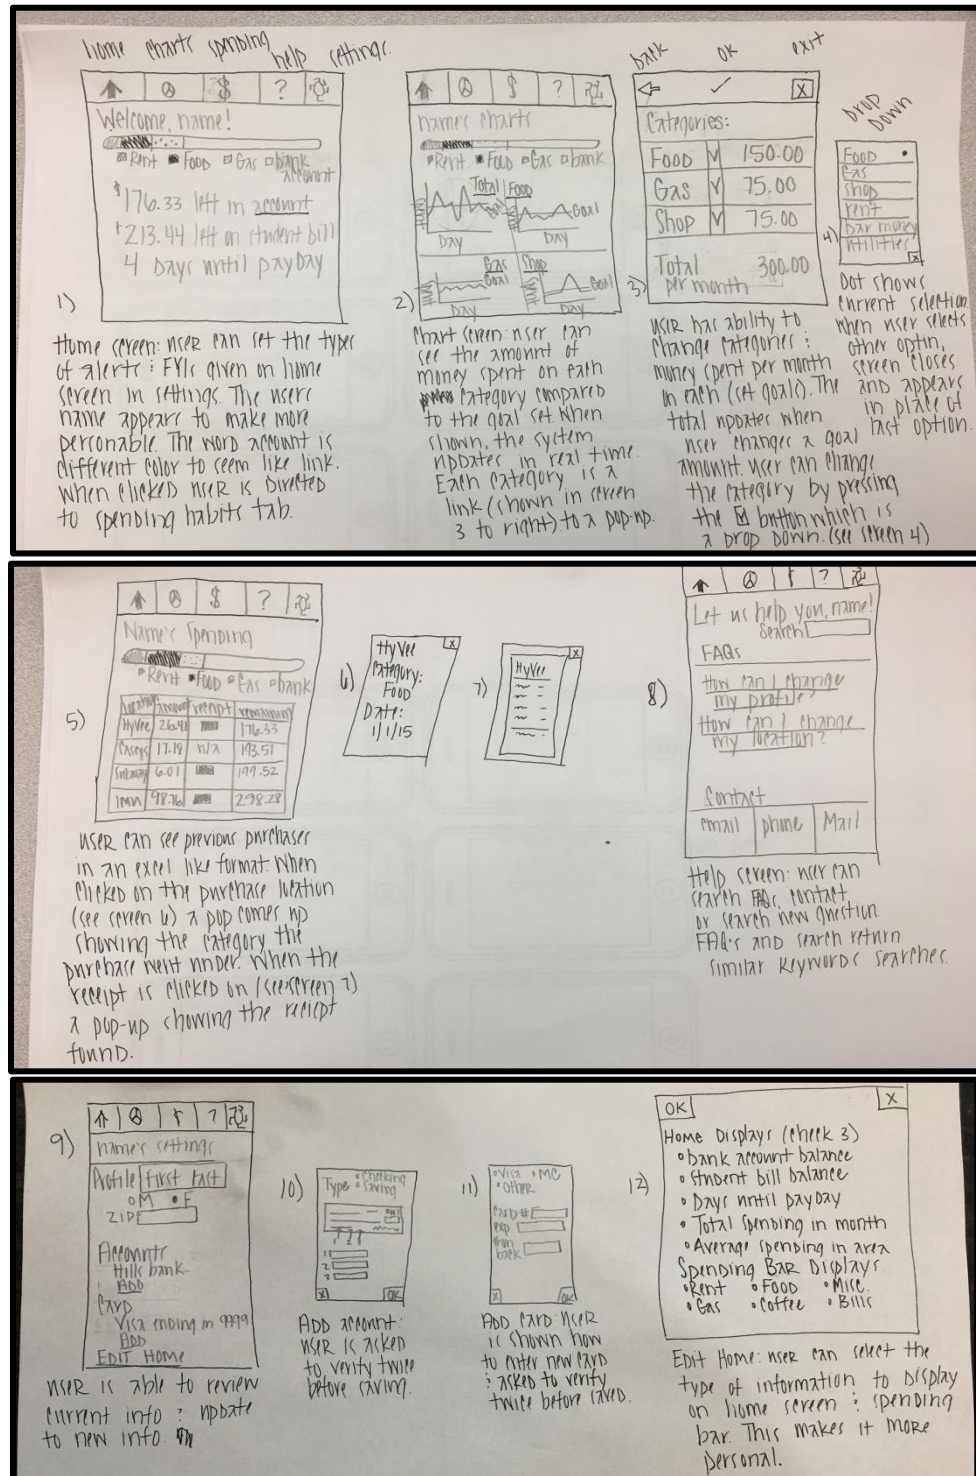 home charts spending help settings.
$ ?
Welcome, name!
Rent Food Gas bank account
$176.33 left in account
$213.44 left on student bill
4 Days until payday
1)
Home screen: user can set the types
of alerts & FYIs given on home
screen in settings. The users
name appears to make more
personable. The word account is
different color to seem like link.
When clicked user is directed
to spending habits tab.
$ ?
name's charts
Rent Food Gas bank
Total Food
Goal
Day Day
Gas Shop
Goal Goal
Day Day
2)
Chart screen: user can
see the amount of
money spent on each
category compared
to the goal set. When
shown, the system
updates in real time.
Each category is a
link (shown in screen
3 to right) to a pop-up.
back OK exit
X
Categories:
Food 150.00
Gas 75.00
Shop 75.00
Total 300.00
per month
3)
user has ability to
change categories &
money spent per month
in each (set goals). The
total updates when
user changes a goal
amount. user can change
the category by pressing
the button which is
a drop down. (see screen 4)
Drop
Down
Food
Gas
Shop
rent
bar money
utilities
X
4)
Dot shows
current selection.
when user selects
other optin,
screen closes
and appears
in place of
last option.
$ ?
Name's Spending
Rent Food Gas bank
location amount receipt remaining
HyVee 26.41 176.33
Caseys 17.19 n/a 193.51
Subway 6.01 199.52
Imu 98.76 298.28
5)
user can see previous purchases
in an excel like format. When
clicked on the purchase location
(see screen 6) a pop comes up
showing the category the
purchase went under. When the
receipt is clicked on (see screen 7)
a pop-up showing the reciept
found.
6)
X
HyVee
Category:
Food
Date:
1/1/15
7)
X
HyVee
?
Let us help you, name!
Search
FAQs
How can I change
my profile?
How can I change
my location?
Contact
email phone Mail
8)
Help screen: user can
search FAQs, contact
or search new question.
FAQ's and search return
similar keywords searches.
9)
?
name's settings
Profile First Last
M F
ZIP
Accounts
Hills bank
ADD
Card
Visa ending in 9999
ADD
EDIT Home
user is able to review
current info & update
to new info.
10)
Type Checking
Saving
1 2 3
1
2
3
X OK
ADD account:
user is asked
to verify twice
before saving.
11)
Visa MC
Other
Card #
exp
from
back
X OK
ADD card: user
is shown how
to enter new card
& asked to verify
twice before saved.
12)
OK X
Home Displays (check 3)
bank account balance
student bill balance
Days until payday
Total spending in month
Average spending in area
Spending Bar Displays
Rent Food Misc.
Gas Coffee Bills
Edit Home: user can select the
type of information to display
on home screen & spending
bar. This makes it more
personal.